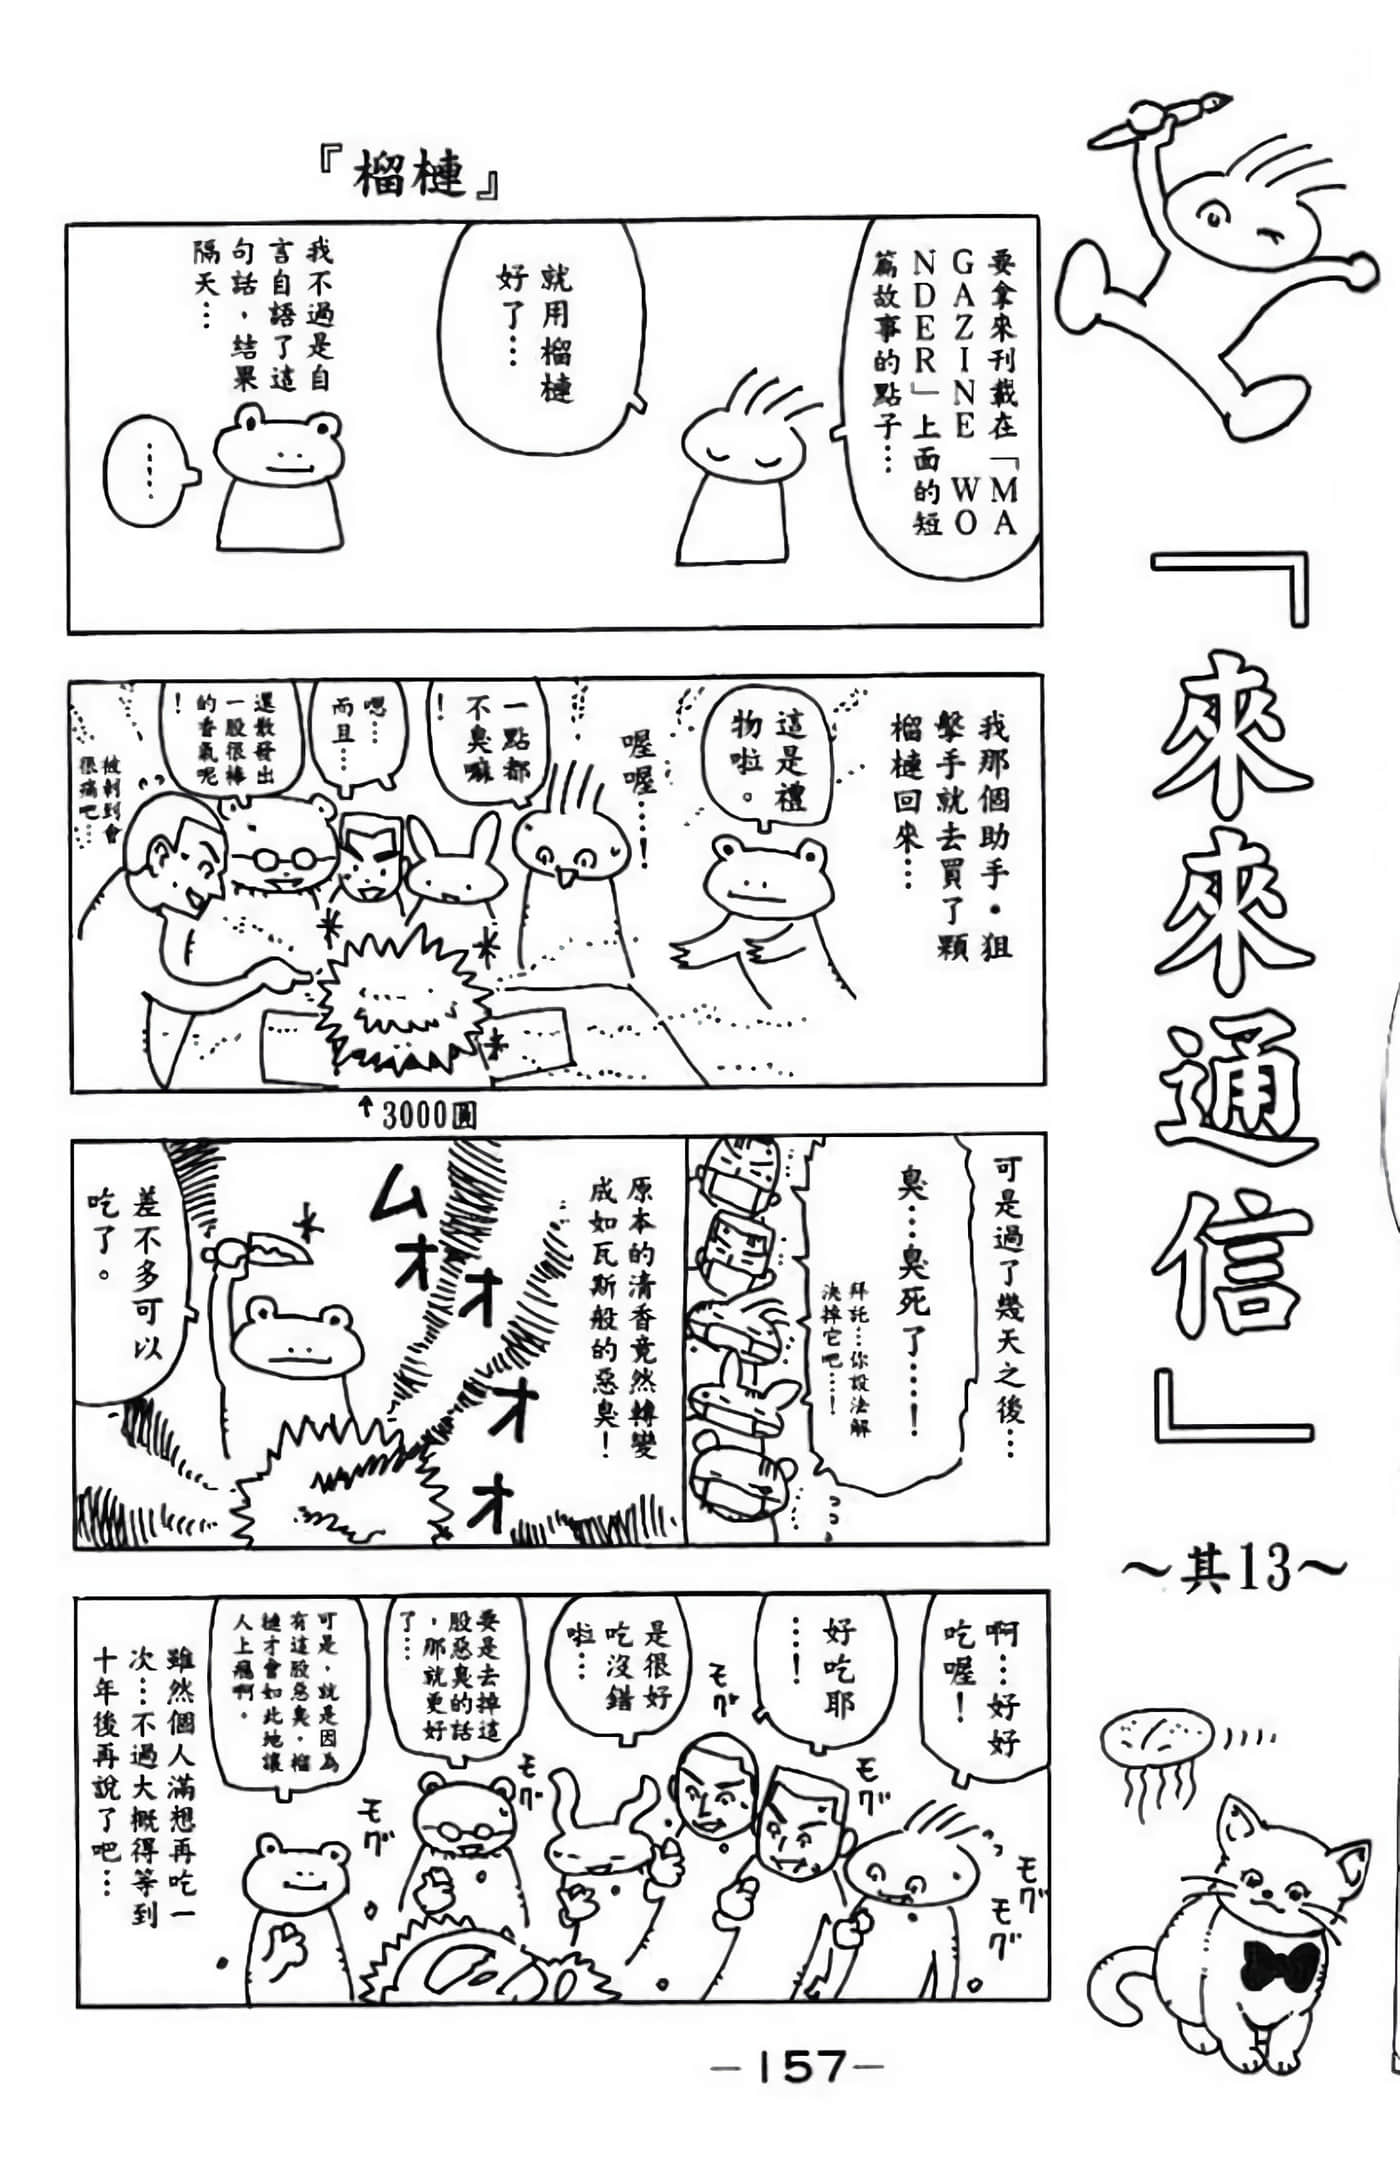 『來來通信』
～其13～
『榴槤』
要拿來刊載在「MA
GAZINE WO
NDER」上面的短
篇故事的點子…
就用榴槤
好了…
我不過是自
言自語了這
句話，結果
隔天…
……
我那個助手・狙
擊手就去買了顆
榴槤回來…
這是禮
物啦。
喔喔…！
一點都
不臭嘛
！
嗯…
而且…
還散發出
一股很棒
的香氣呢
！
被刺到會
很痛吧…
↑3000圓
可是過了幾天之後…
臭…臭死了…！
拜託…你設法解
決掉它吧…！
原本的清香竟然轉變
成如瓦斯般的惡臭！
ムオオオオ
差不多可以
吃了。
啊…好好
吃喔！
好吃耶
…！
是很好
吃沒錯
啦…
要是去掉這
股惡臭的話
，那就更好
了…
可是，就是因為
有這股惡臭，榴
槤才會如此地讓
人上癮啊。
モグ
モグ
モグ
モグ
モグ
モグ
雖然個人滿想再吃一
次…不過大概得等到
十年後再說了吧…
－157－